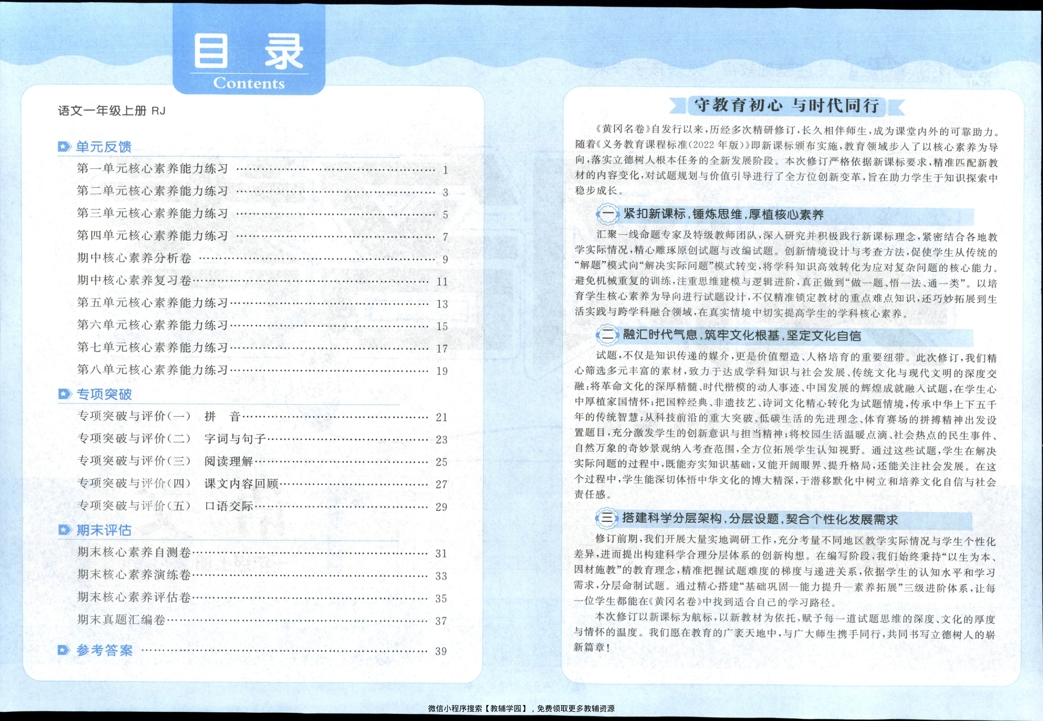 目 录
Contents
语文一年级上册 RJ
单元反馈
第一单元核心素养能力练习 …… 1
第二单元核心素养能力练习 …… 3
第三单元核心素养能力练习 …… 5
第四单元核心素养能力练习 …… 7
期中核心素养分析卷 …… 9
期中核心素养复习卷 …… 11
第五单元核心素养能力练习 …… 13
第六单元核心素养能力练习 …… 15
第七单元核心素养能力练习 …… 17
第八单元核心素养能力练习 …… 19
专项突破
专项突破与评价(一) 拼 音 …… 21
专项突破与评价(二) 字词与句子 …… 23
专项突破与评价(三) 阅读理解 …… 25
专项突破与评价(四) 课文内容回顾 …… 27
专项突破与评价(五) 口语交际 …… 29
期末评估
期末核心素养自测卷 …… 31
期末核心素养演练卷 …… 33
期末核心素养评估卷 …… 35
期末真题汇编卷 …… 37
参考答案 …… 39
守教育初心 与时代同行
《黄冈名卷》自发行以来,历经多次精研修订,长久相伴师生,成为课堂内外的可靠助力。
随着《义务教育课程标准(2022 年版)》即新课标颁布实施,教育领域步入了以核心素养为导
向,落实立德树人根本任务的全新发展阶段。本次修订严格依据新课标要求,精准匹配新教
材的内容变化,对试题规划与价值引导进行了全方位创新变革,旨在助力学生于知识探索中
稳步成长。
一 紧扣新课标,锤炼思维,厚植核心素养
汇聚一线命题专家及特级教师团队,深入研究并积极践行新课标理念,紧密结合各地教
学实际情况,精心雕琢原创试题与改编试题。创新情境设计与考查方法,促使学生从传统的
“解题”模式向“解决实际问题”模式转变,将学科知识高效转化为应对复杂问题的核心能力。
避免机械重复的训练,注重思维建模与逻辑进阶,真正做到“做一题、悟一法、通一类”。以培
育学生核心素养为导向进行试题设计,不仅精准锁定教材的重点难点知识,还巧妙拓展到生
活实践与跨学科融合领域,在真实情境中切实提高学生的学科核心素养。
二 融汇时代气息,筑牢文化根基,坚定文化自信
试题,不仅是知识传递的媒介,更是价值塑造、人格培育的重要纽带。此次修订,我们精
心筛选多元丰富的素材,致力于达成学科知识与社会发展、传统文化与现代文明的深度交
融;将革命文化的深厚精髓、时代楷模的动人事迹、中国发展的辉煌成就融入试题,在学生心
中厚植家国情怀;把国粹经典、非遗技艺、诗词文化精心转化为试题情境,传承中华上下五千
年的传统智慧;从科技前沿的重大突破、低碳生活的先进理念、体育赛场的拼搏精神出发设
置题目,充分激发学生的创新意识与担当精神;将校园生活温暖点滴、社会热点的民生事件、
自然万象的奇妙景观纳入考查范围,全方位拓展学生认知视野。通过这些试题,学生在解决
实际问题的过程中,既能夯实知识基础,又能开阔眼界、提升格局,还能关注社会发展。在这
个过程中,学生能深切体悟中华文化的博大精深,于潜移默化中树立和培养文化自信与社会
责任感。
三 搭建科学分层架构,分层设题,契合个性化发展需求
修订前期,我们开展大量实地调研工作,充分考量不同地区教学实际情况与学生个性化
差异,进而提出构建科学合理分层体系的创新构想。在编写阶段,我们始终秉持“以生为本、
因材施教”的教育理念,精准把握试题难度的梯度与递进关系,依据学生的认知水平和学习
需求,分层命制试题。通过精心搭建“基础巩固—能力提升—素养拓展”三级进阶体系,让每
一位学生都能在《黄冈名卷》中找到适合自己的学习路径。
本次修订以新课标为航标,以新教材为依托,赋予每一道试题思维的深度、文化的厚度
与情怀的温度。我们愿在教育的广袤天地中,与广大师生携手同行,共同书写立德树人的崭
新篇章!
微信小程序搜索【教辅学园】,免费领取更多教辅资源